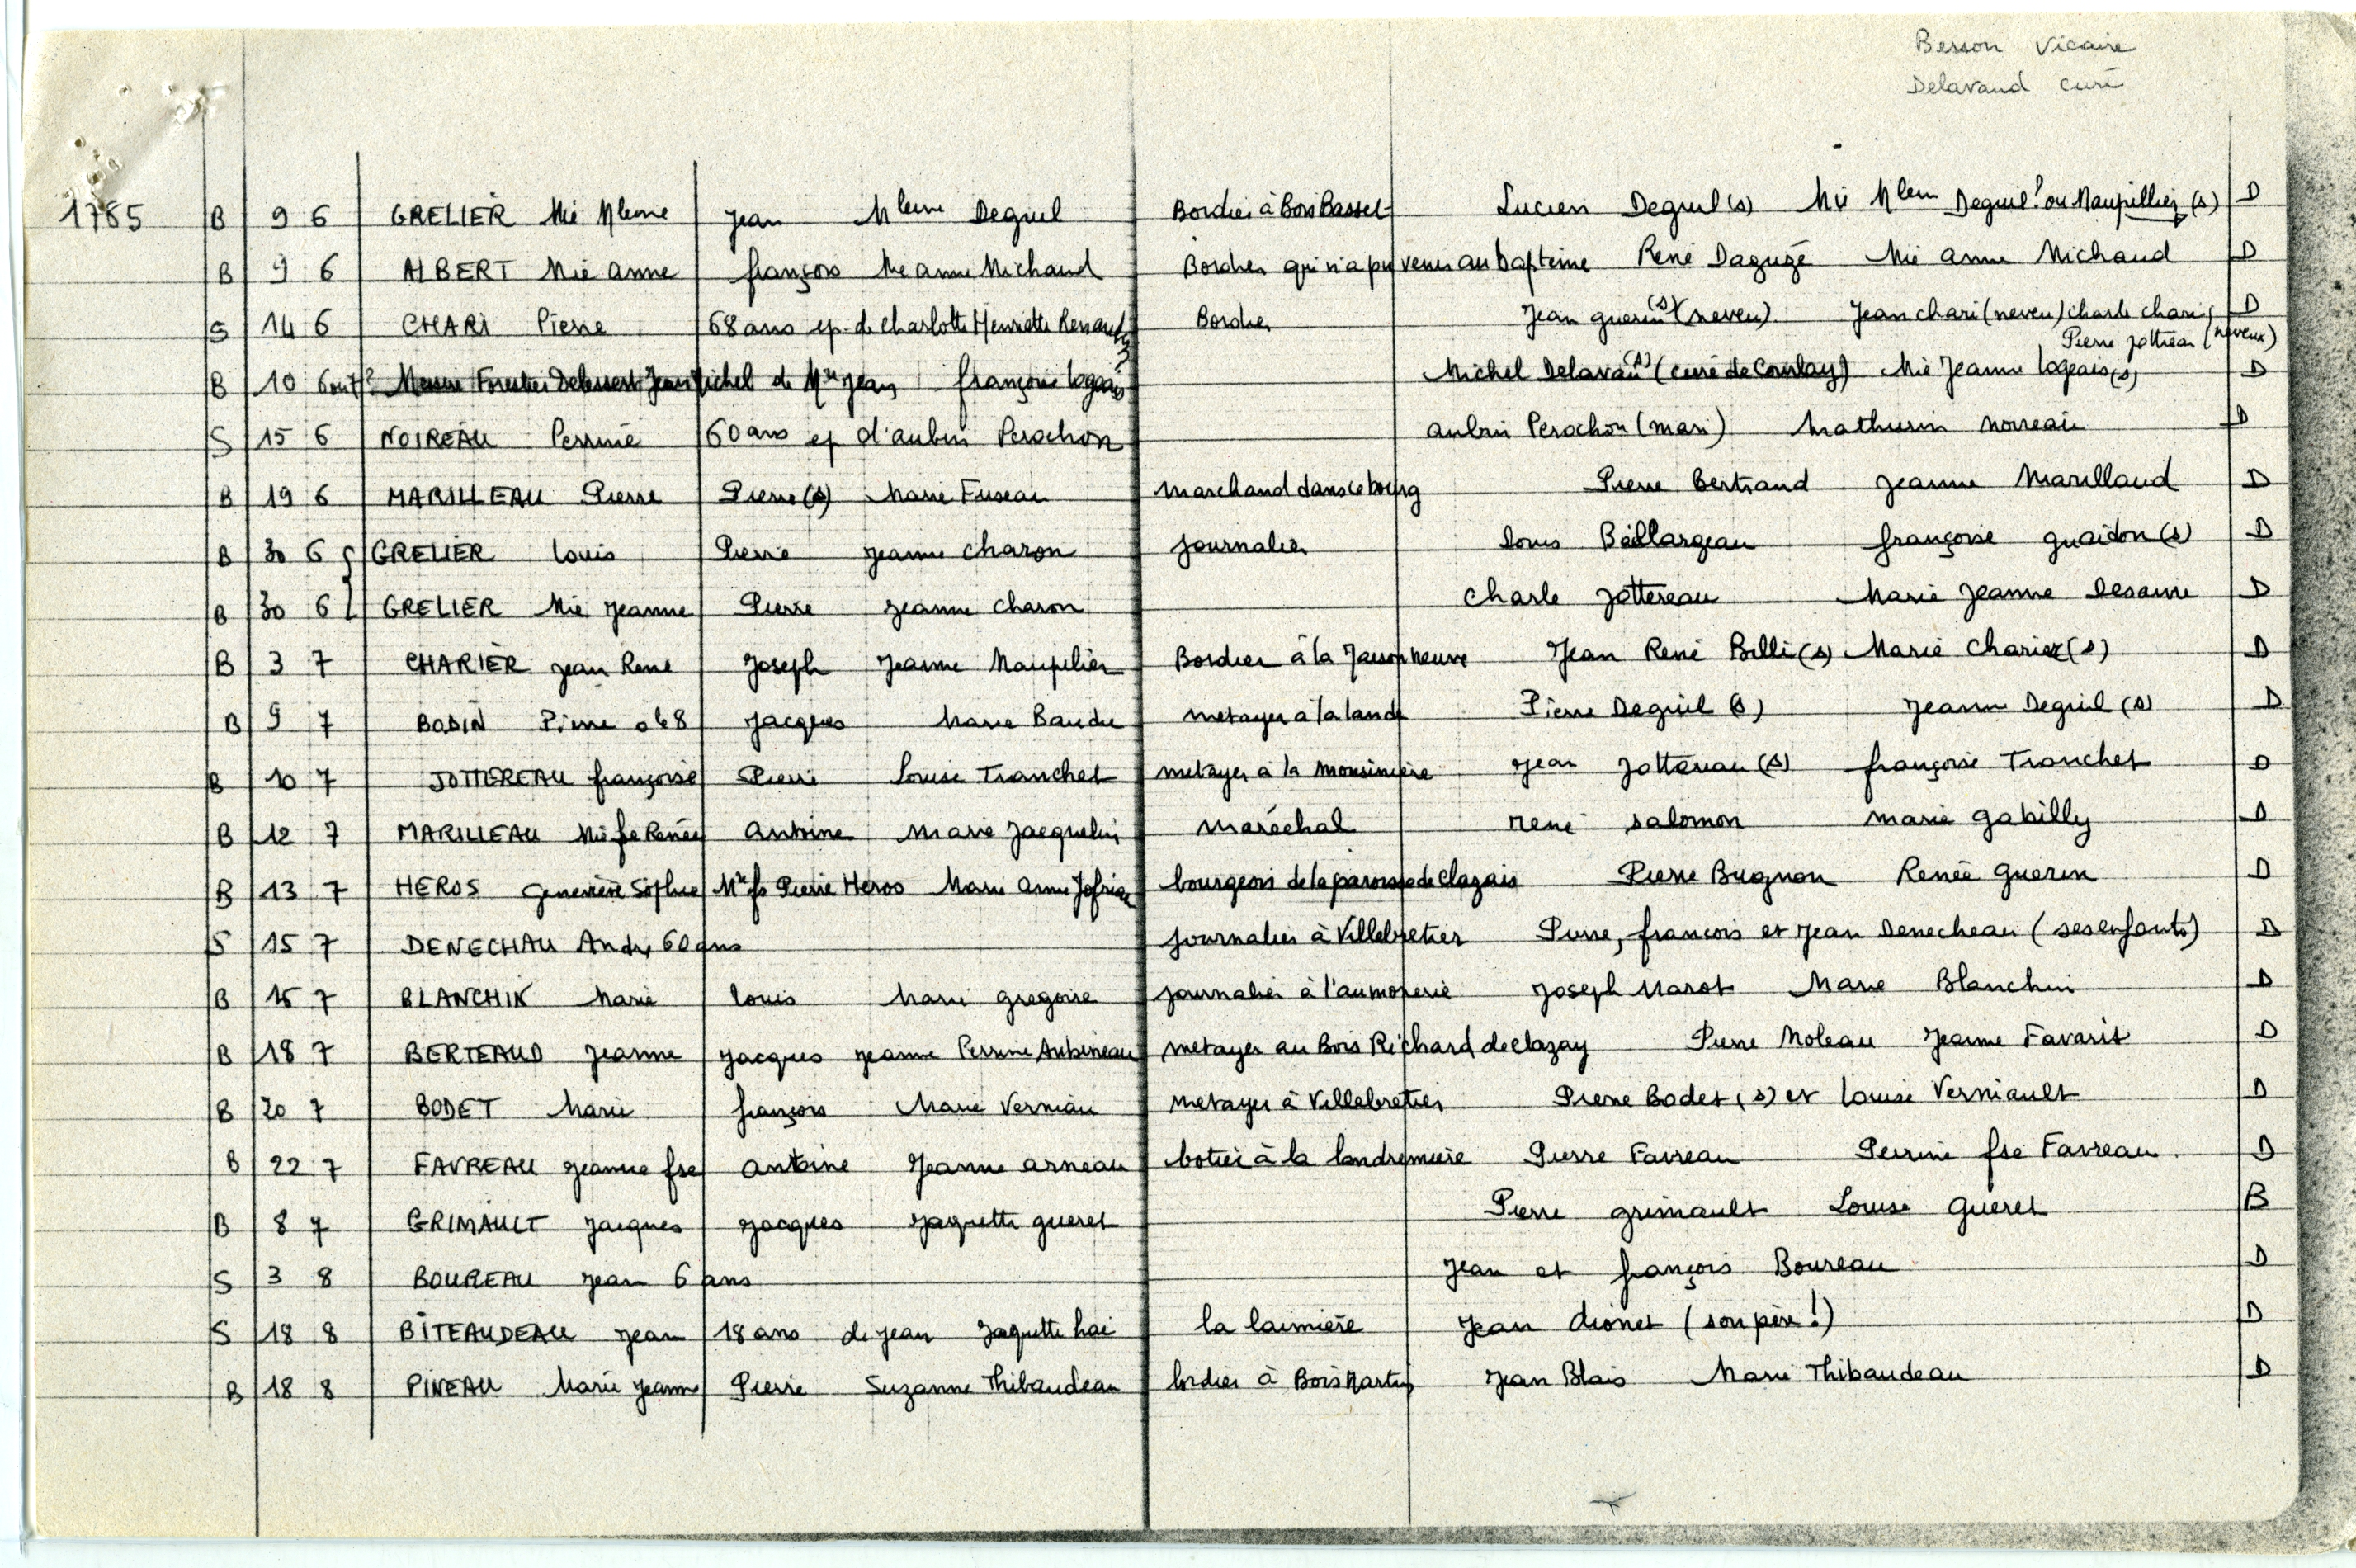 Besson Vicaire
Delavaud curé
1785 B 9 6 GRELIER Mie Mleine Jean Mleine Deguil Bordier à Bois Basset Lucien Deguil (s) Mie Mlein Deguil! ou Maupillier (s) D
B 9 6 ALBERT Mie Anne françois Mie anne Michaud Bordier qui n'a pu venir au bapteme René Daguzé Mie anne Michaud D
S 14 6 CHARI Pierre 68 ans ep. de Charlotte Henriette Renault Bordier Jean guerin (s) (neveu) Jean chari (neveu) charle chari D
Pierre jottreau (neveux)
B 10 6 ou 7? Forestier Delessert Jean Michel de Mre Jean françoise logeais Michel Delavau (s) (curé de Courlay) Mie Jeanne logeais (s) D
S 15 6 NOIREAU Perrine 60 ans ep d'aubin Perochon aubin Perochon (mari) Mathurin noireau D
B 19 6 MARILLEAU Pierre Pierre (s) Marie Fuseau marchand dans le bourg Pierre Bertrand Jeanne Marillaud D
B 30 6 GRELIER louis Pierre Jeanne Charon journalier louis Baillargeau françoise guaidon (s) D
B 30 6 GRELIER Mie Jeanne Pierre Jeanne Charon Charle Jottereau Marie Jeanne Desanne D
B 3 7 CHARIER Jean René Joseph Jeanne Maupilier Bordier à la Maison neuve Jean René Billi (s) Marie Charier (s) D
B 9 7 BODIN Pierre o le 8 Jacques Marie Baudu metayer à la lande Pierre Deguil (s) Jeanne Deguil (s) D
B 10 7 JOTTEREAU françoise Pierre Louise Tranchet metayer à la mousiniere Jean Jottereau (s) françoise Tranchet D
B 12 7 MARILLEAU Mie fse Renée Antoine Marie Jacquelin maréchal rené salomon marie gabilly D
B 13 7 HEROS Genevière Sophie Mre fs Pierre Heros Marie Anne bourgeois de la paroisse de Clazais Pierre Bugnon Renée Guerin D
S 15 7 DENECHAU André 60 ans journalier à Villebretier Pierre, francois et Jean Denecheau (ses enfants) D
B 15 7 BLANCHIN Marie louis Marie gregoire journalier à l'aumonerie Joseph Marot Marie Blanchin D
B 18 7 BERTEAUD Jeanne Jacques Jeanne Perrine Aubineau metayer au Bois Richard de clazay Pierre Moleau Jeanne Favarit D
B 20 7 BODET Marie françois Marie Verniau metayer à Villebretier Pierre Bodet (s) et Louise Verniault D
B 22 7 FAVREAU Jeanne fse antoine Jeanne arneau botier à la landremiere Pierre Favreau Perrine fse Favreau D
B 8 7 GRIMAULT Jacques Jacques Jaquette gueret Pierre grimault Louise Gueret B
S 3 8 BOUREAU Jean 6 ans Jean et françois Boureau D
S 18 8 BITEAUDEAU Jean 18 ans de Jean Jaquette hai la laimière Jean dionet (son père!) D
B 18 8 PINEAU Marie Jeanne Pierre Suzanne Thibaudeau bordier à Bois Martin Jean Blais Marie Thibaudeau D